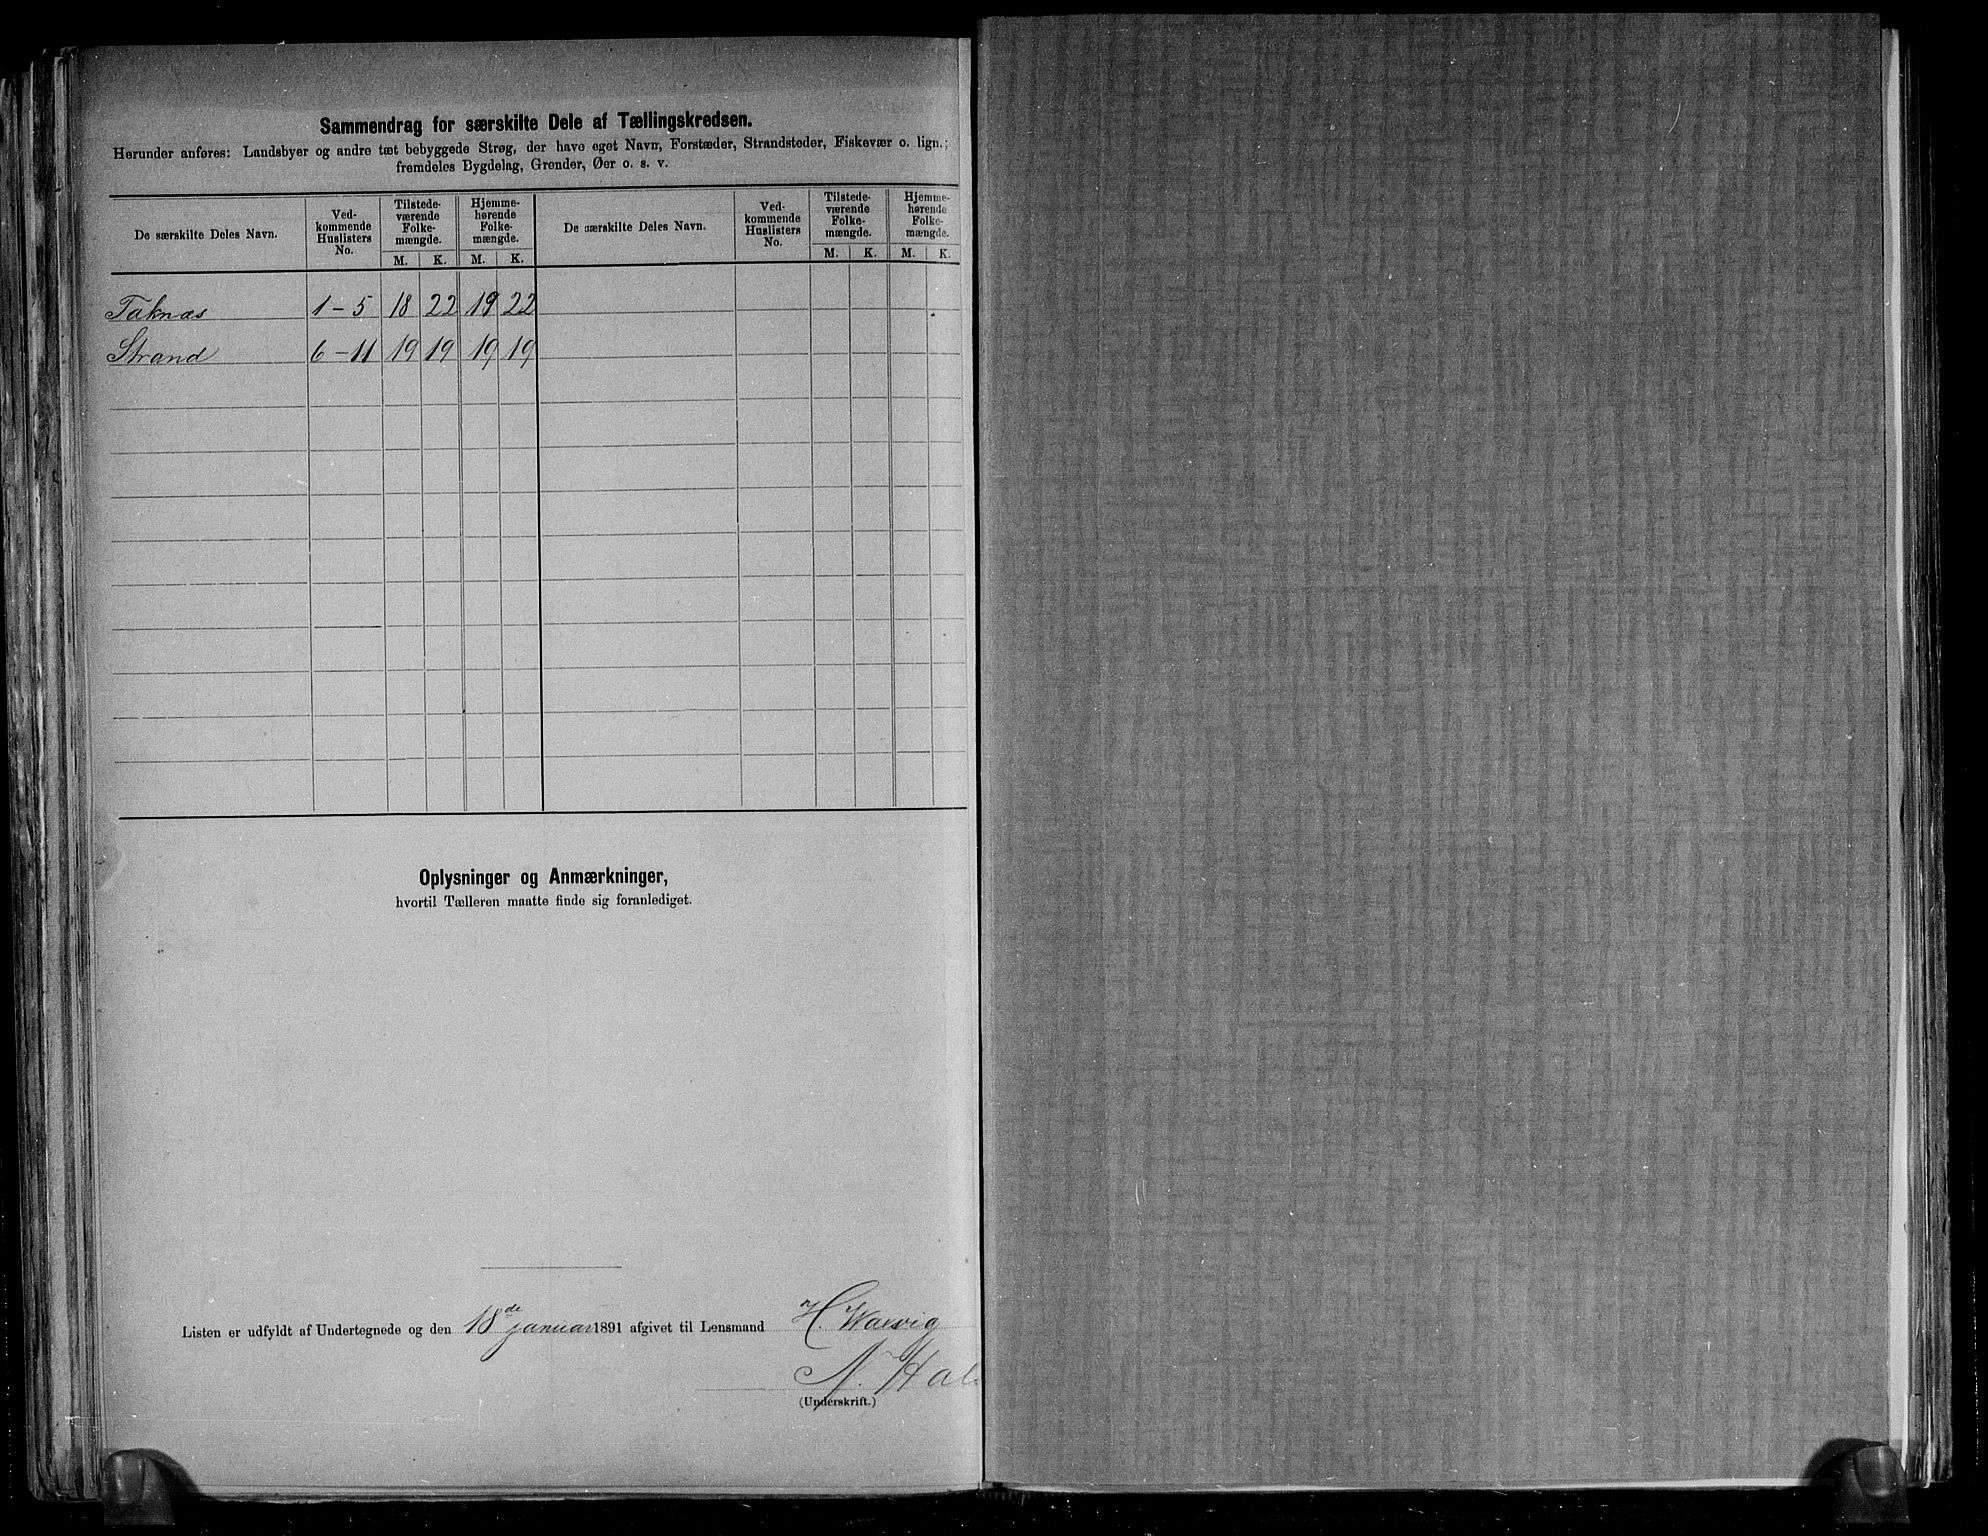 Sammendrag for særskilte Dele af Tællingskredsen.
Herunder anføres: Landsbyer og andre tæt bebyggede Strøg, der have eget Navn, Forstæder, Strandsteder, Fiskevær o. lign.;
fremdeles Bygdelag, Grender, Øer o. s. v.
De særskilte Deles Navn.
Ved-
kommende
Huslisters
No.
Tilstede-
værende
Folke-
mængde.
Hjemme-
hørende
Folke-
mængde.
M. K. M. K.
De særskilte Deles Navn.
Ved-
kommende
Huslisters
No.
Tilstede-
værende
Folke-
mængde.
Hjemme-
hørende
Folke-
mængde.
M. K. M. K.
Taknæs 1-5 18 22 19 22
Strand 6-11 19 19 19 19
Oplysninger og Anmærkninger,
hvortil Tælleren maatte finde sig foranlediget.
Listen er udfyldt af Undertegnede og den 18de Januar 1891 afgivet til Lensmand H.
N. Hals
(Underskrift.)